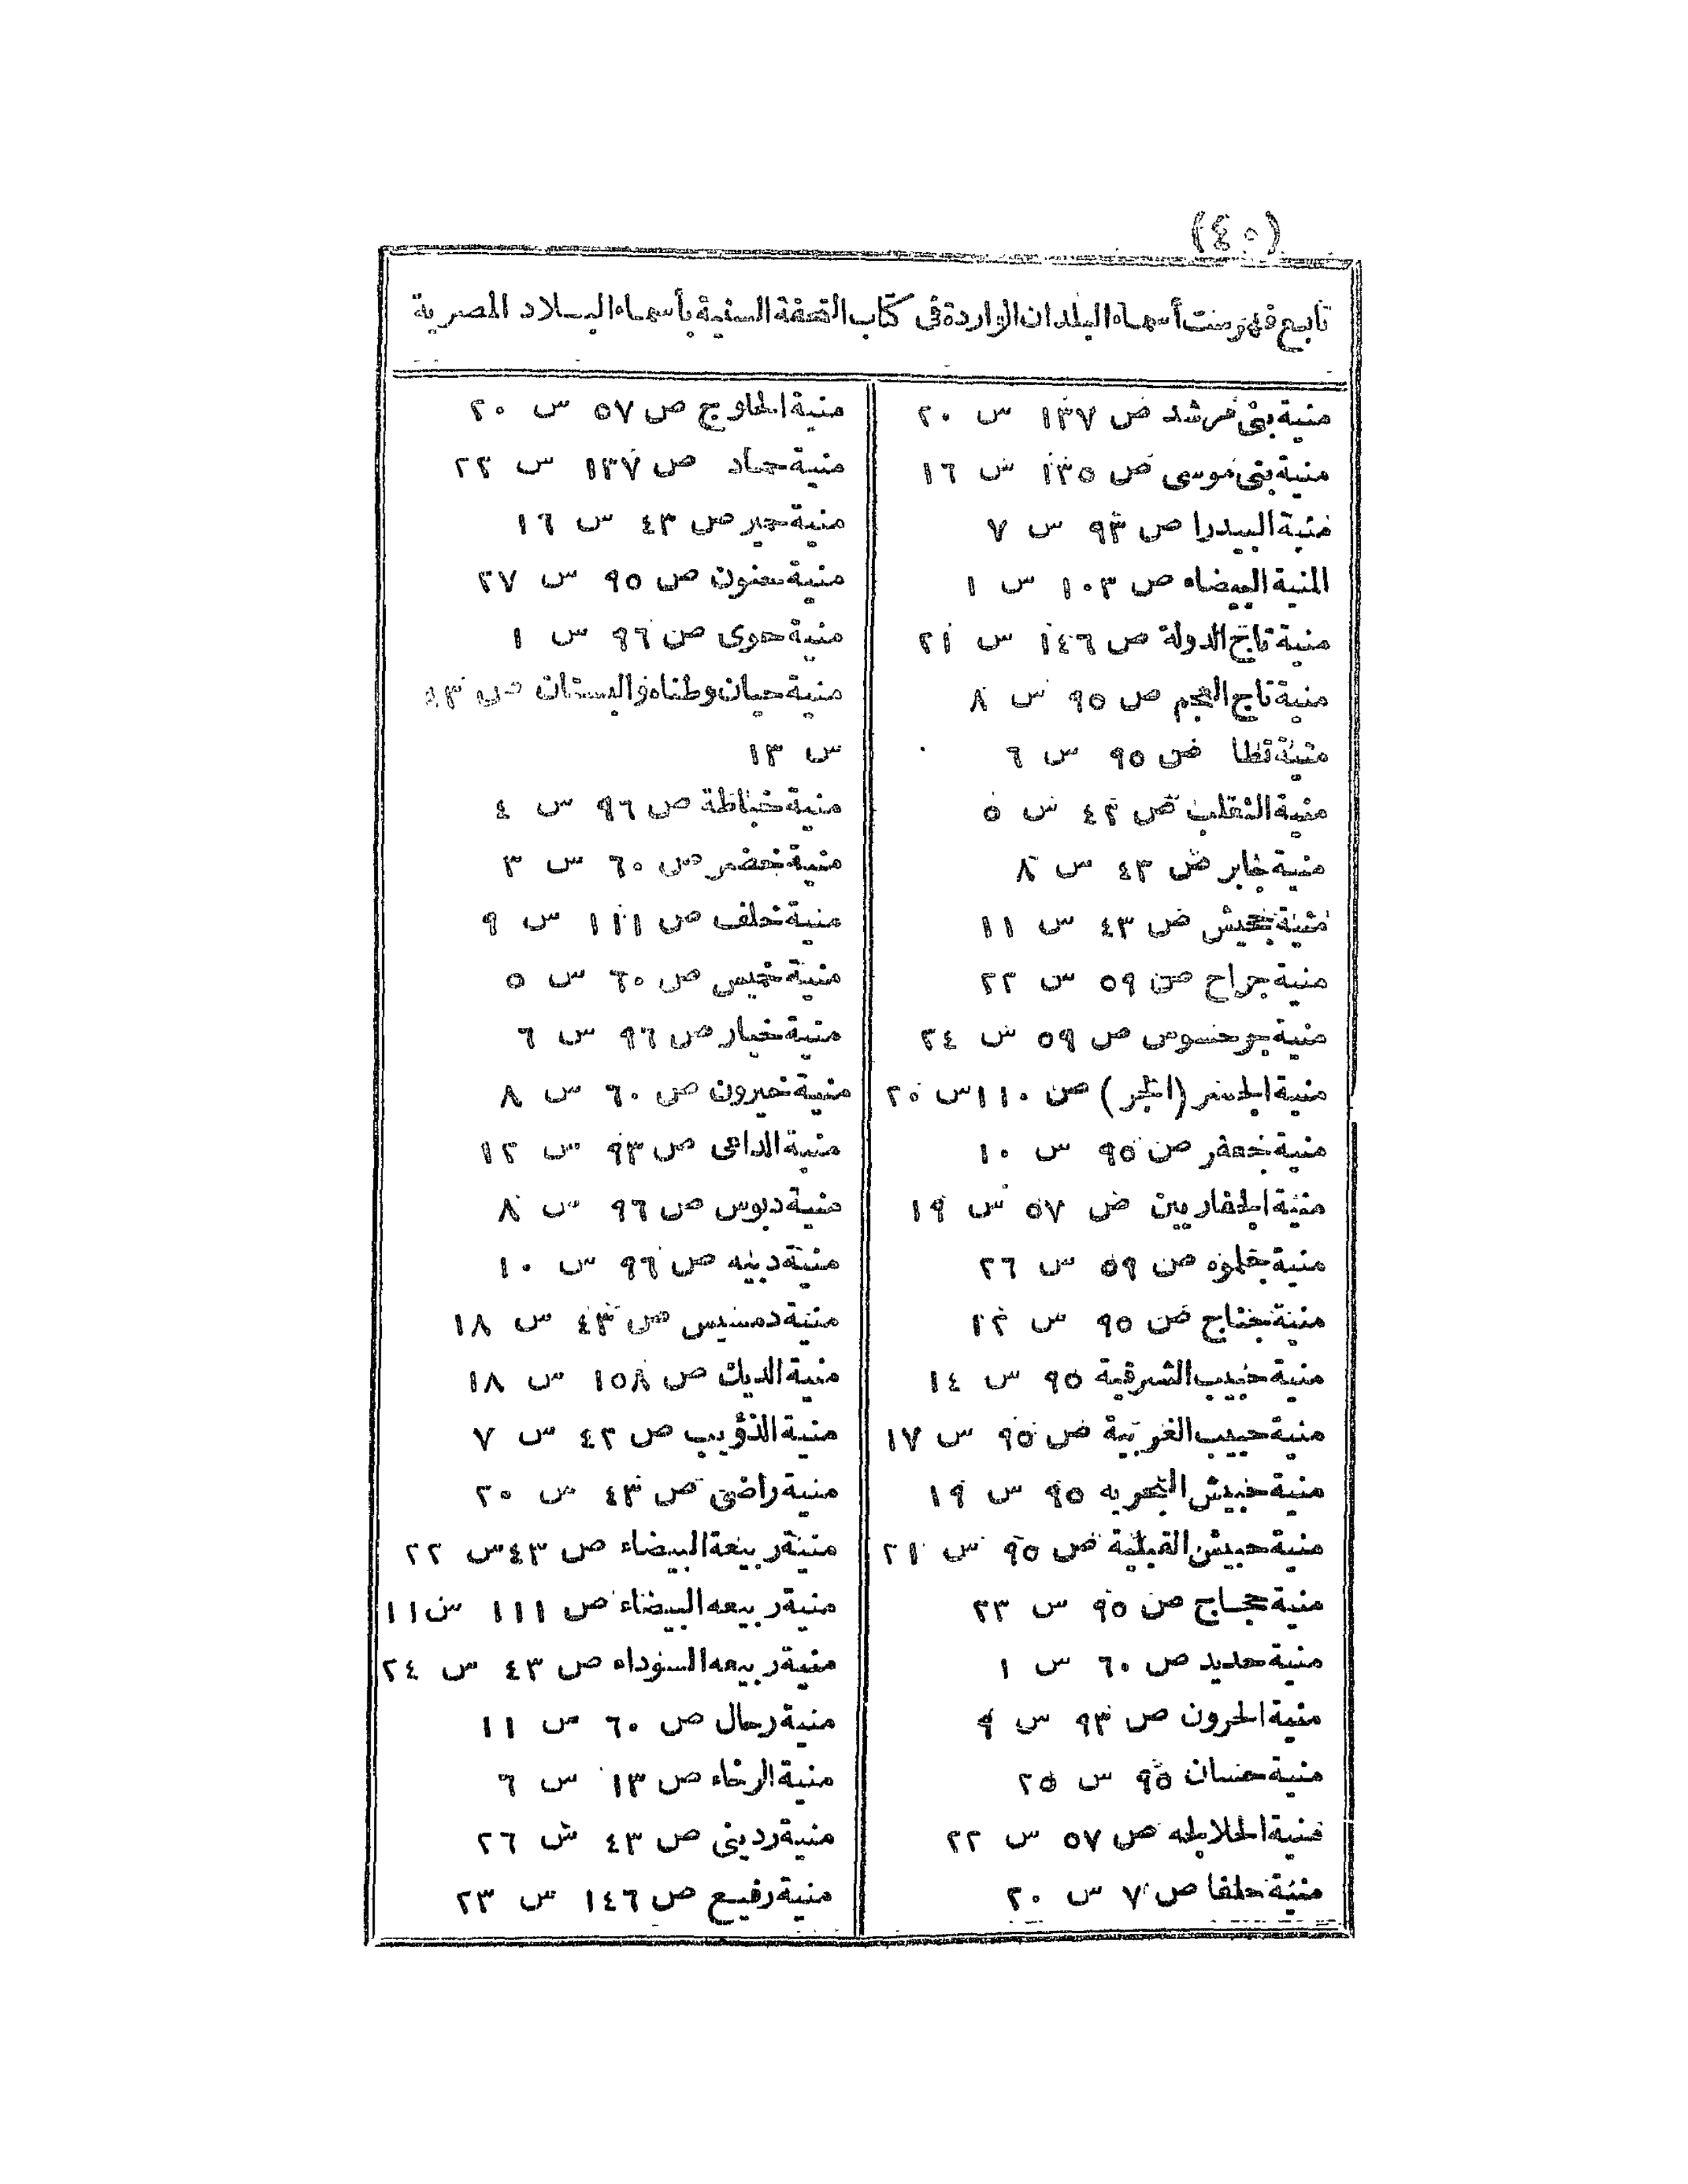 (٤٠)
تابع فهرست أسماء البلدان الواردة فى كتاب التحفة السنية بأسماء البلاد المصرية
منية بنى مرشد ص ١٣٧ س ٢٠
منية بنى موسى ص ١٣٥ س ١٦
منية البيدرا ص ٩٣ س ٧
المنية البيضاء ص ١٠٣ س ١
منية تاج الدولة ص ١٤٦ س ٢١
منية تاج العجم ص ٩٥ س ٨
منية تطا ص ٩٥ س ٦
منية الثعلب ص ٤٢ س ٥
منية جابر ص ٤٣ س ٨
منية جحيش ص ٤٣ س ١١
منية جراح ص ٥٩ س ٢٢
منية جرحسوس ص ٥٩ س ٢٤
منية الجسر (الجر) ص ١١٠ س ٢٠
منية جعفر ص ٩٥ س ١٠
منية الجفاريين ص ٥٧ س ١٩
منية جلوه ص ٥٩ س ٢٦
منية جناج ص ٩٥ س ١٢
منية حبيب الشرقية ٩٥ س ١٤
منية حبيب الغربية ص ٩٥ س ١٧
منية حبيش البحريه ٩٥ س ١٩
منية حبيش القبلية ص ٩٥ س ٢١
منية حجاج ص ٩٥ س ٢٣
منية حديد ص ٦٠ س ١
منية الحرون ص ٩٣ س ٩
منية حسان ٩٥ س ٢٥
منية الحلابجه ص ٥٧ س ٢٢
منية حلفا ص ٧ س ٢٠
منية الحاوج ص ٥٧ س ٢٠
منية حماد ص ١٣٧ س ٢٢
منية حمير ص ٤٣ س ١٦
منية ص ٩٥ س ٢٧
منية حوى ص ٩٦ س ١
منية حيان وطناه والبستان ص
س ١٣
منية خباطة ص ٩٦ س ٤
منية خضر ص ٦٠ س ٣
منية خلف ص ١١١ س ٩
منية خميس ص ٦٠ س ٥
منية خيار ص ٩٦ س ٦
منية خيرون ص ٦٠ س ٨
منية الداعى ص ٩٣ س ١٢
منية دبوس ص ٩٦ س ٨
منية دبنه ص ٩٦ س ١٠
منية دمسيس ص ٤٣ س ١٨
منية الديك ص ١٥٨ س ١٨
منية الذؤيب ص ٤٢ س ٧
منية راضى ص ٤٣ س ٢٠
منية ربيعة البيضاء ص ٤٣ س ٢٢
منية ربيعه البيضاء ص ١١١ س ١١
منية ربيعه السوداء ص ٤٣ س ٢٤
منية رحال ص ٦٠ س ١١
منية الرخاء ص ١٣ س ٦
منية ردينى ص ٤٣ س ٢٦
منية رفيع ص ١٤٦ س ٢٣